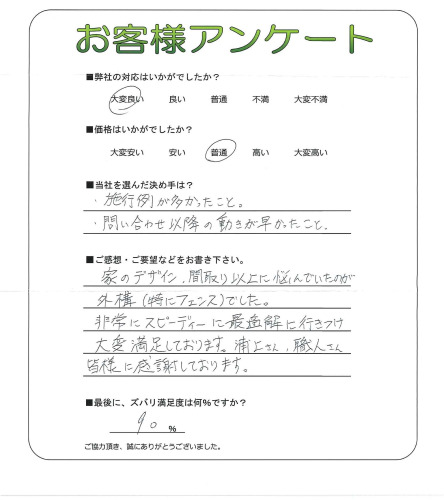 お客様アンケート
■弊社の対応はいかがでしたか？
大変良い 良い 普通 不満 大変不満
■価格はいかがでしたか？
大変安い 安い 普通 高い 大変高い
■当社を選んだ決め手は？
・施行例が多かったこと。
・問い合わせ以降の動きが早かったこと。
■ご感想・ご要望などをお書き下さい。
家のデザイン、間取り以上に悩んでいたのが
外構（特にフェンス）でした。
非常にスピーディーに最適解に行きつけ
大変満足しております。浦上さん、職人さん
皆様に感謝しております。
■最後に、ズバリ満足度は何％ですか？
90 ％
ご協力頂き、誠にありがとうございました。